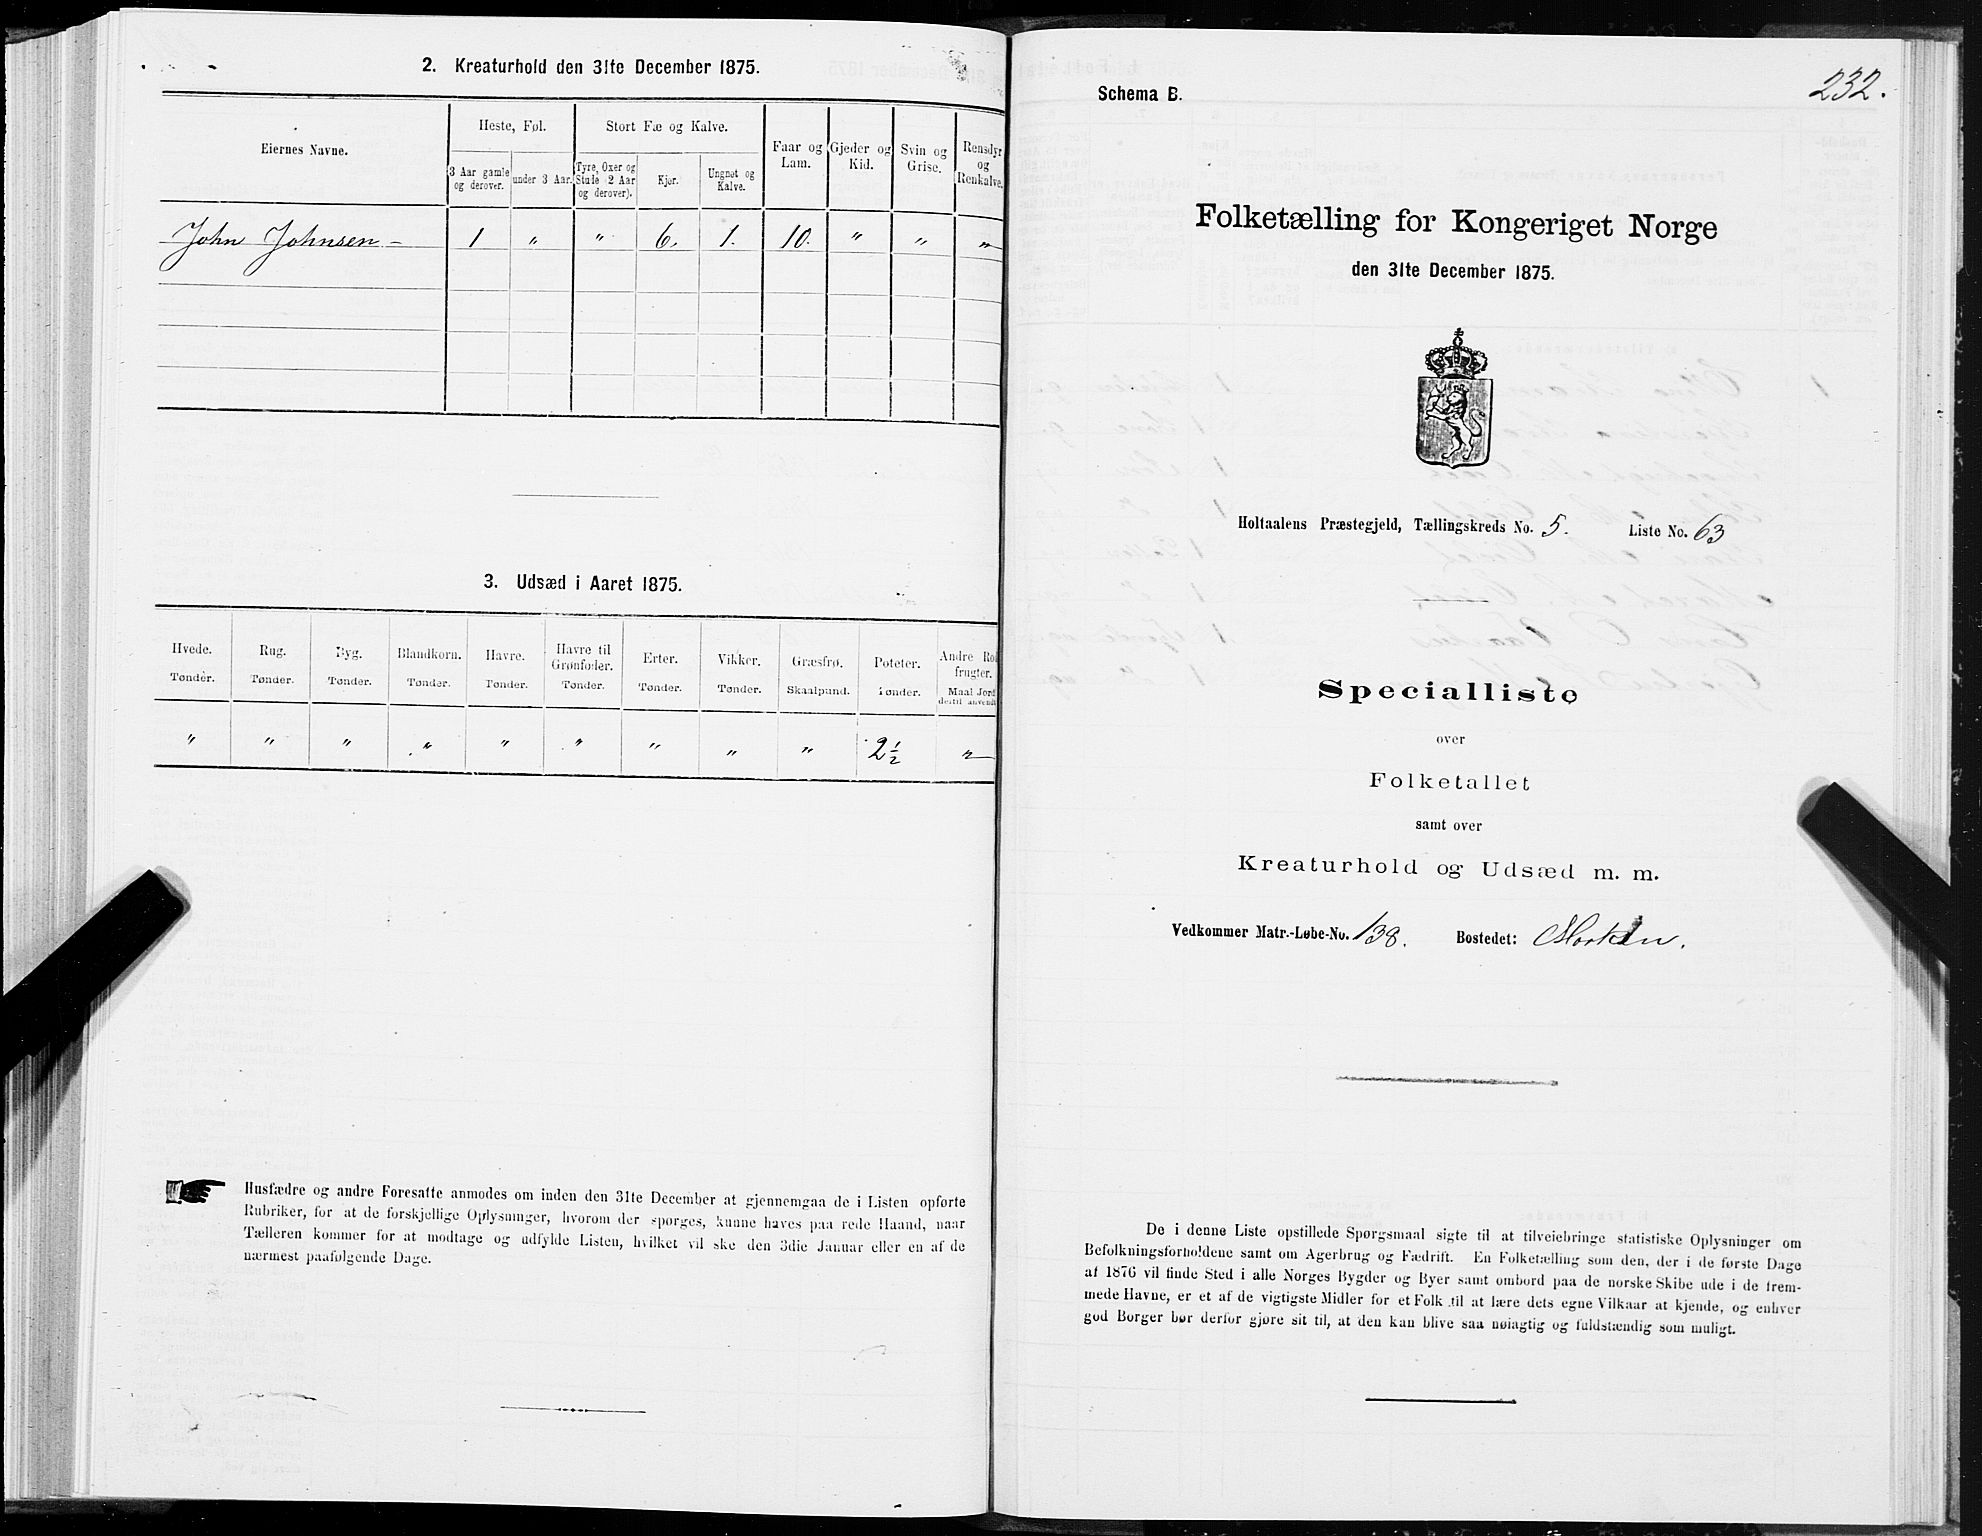 2. Kreaturhold den 31te December 1875.
Eiernes Navne.
Heste, Føl.
Stort Fæ og Kalve.
Faar og Lam.
Gjeder og Kid.
Svin og Grise.
Rensdyr og Renkalve.
3 Aar gamle og derover.
under 3 Aar.
Tyre, Oxer og Stude (2 Aar og derover).
Kjør.
Ungnøt og Kalve.
John Johnsen 1 " " 6. 1. 10. " " "
3. Udsæd i Aaret 1875.
Hvede. Rug. Byg. Blandkorn. Havre. Havre til Grønfoder. Erter. Vikker. Græsfrø. Poteter. Andre Rodfrugter.
Tønder. Tønder. Tønder. Tønder. Tønder. Tønder. Tønder. Tønder. Skaalpund. Tønder. Maal Jord dertil anvendt
" " " " " " " " " 2 1/2 "
Husfædre og andre Foresatte anmodes om inden den 31te December at gjennemgaa de i Listen opførte
Rubriker, for at de forskjellige Oplysninger, hvorom der spørges, kunne haves paa rede Haand, naar
Tælleren kommer for at modtage og udfylde Listen, hvilket vil ske den 3die Januar eller en af de
nærmest paafølgende Dage.
232.
Schema B.
Folketælling for Kongeriget Norge
den 31te December 1875.
Holtaalens Præstegjeld, Tællingskreds No. 5. Liste No. 63
Specialliste
over
Folketallet
samt over
Kreaturhold og Udsæd m. m.
Vedkommer Matr.-Løbe-No. 138. Bostedet:
De i denne Liste opstillede Spørgsmaal sigte til at tilveiebringe statistiske Oplysninger om
Befolkningsforholdene samt om Agerbrug og Fædrift. En Folketælling som den, der i de første Dage
af 1876 vil finde Sted i alle Norges Bygder og Byer samt ombord paa de norske Skibe ude i de frem-
mede Havne, er et af de vigtigste Midler for et Folk til at lære dets egne Vilkaar at kjende, og enhver
god Borger bør derfor gjøre sit til, at den kan blive saa nøiagtig og fuldstændig som muligt.